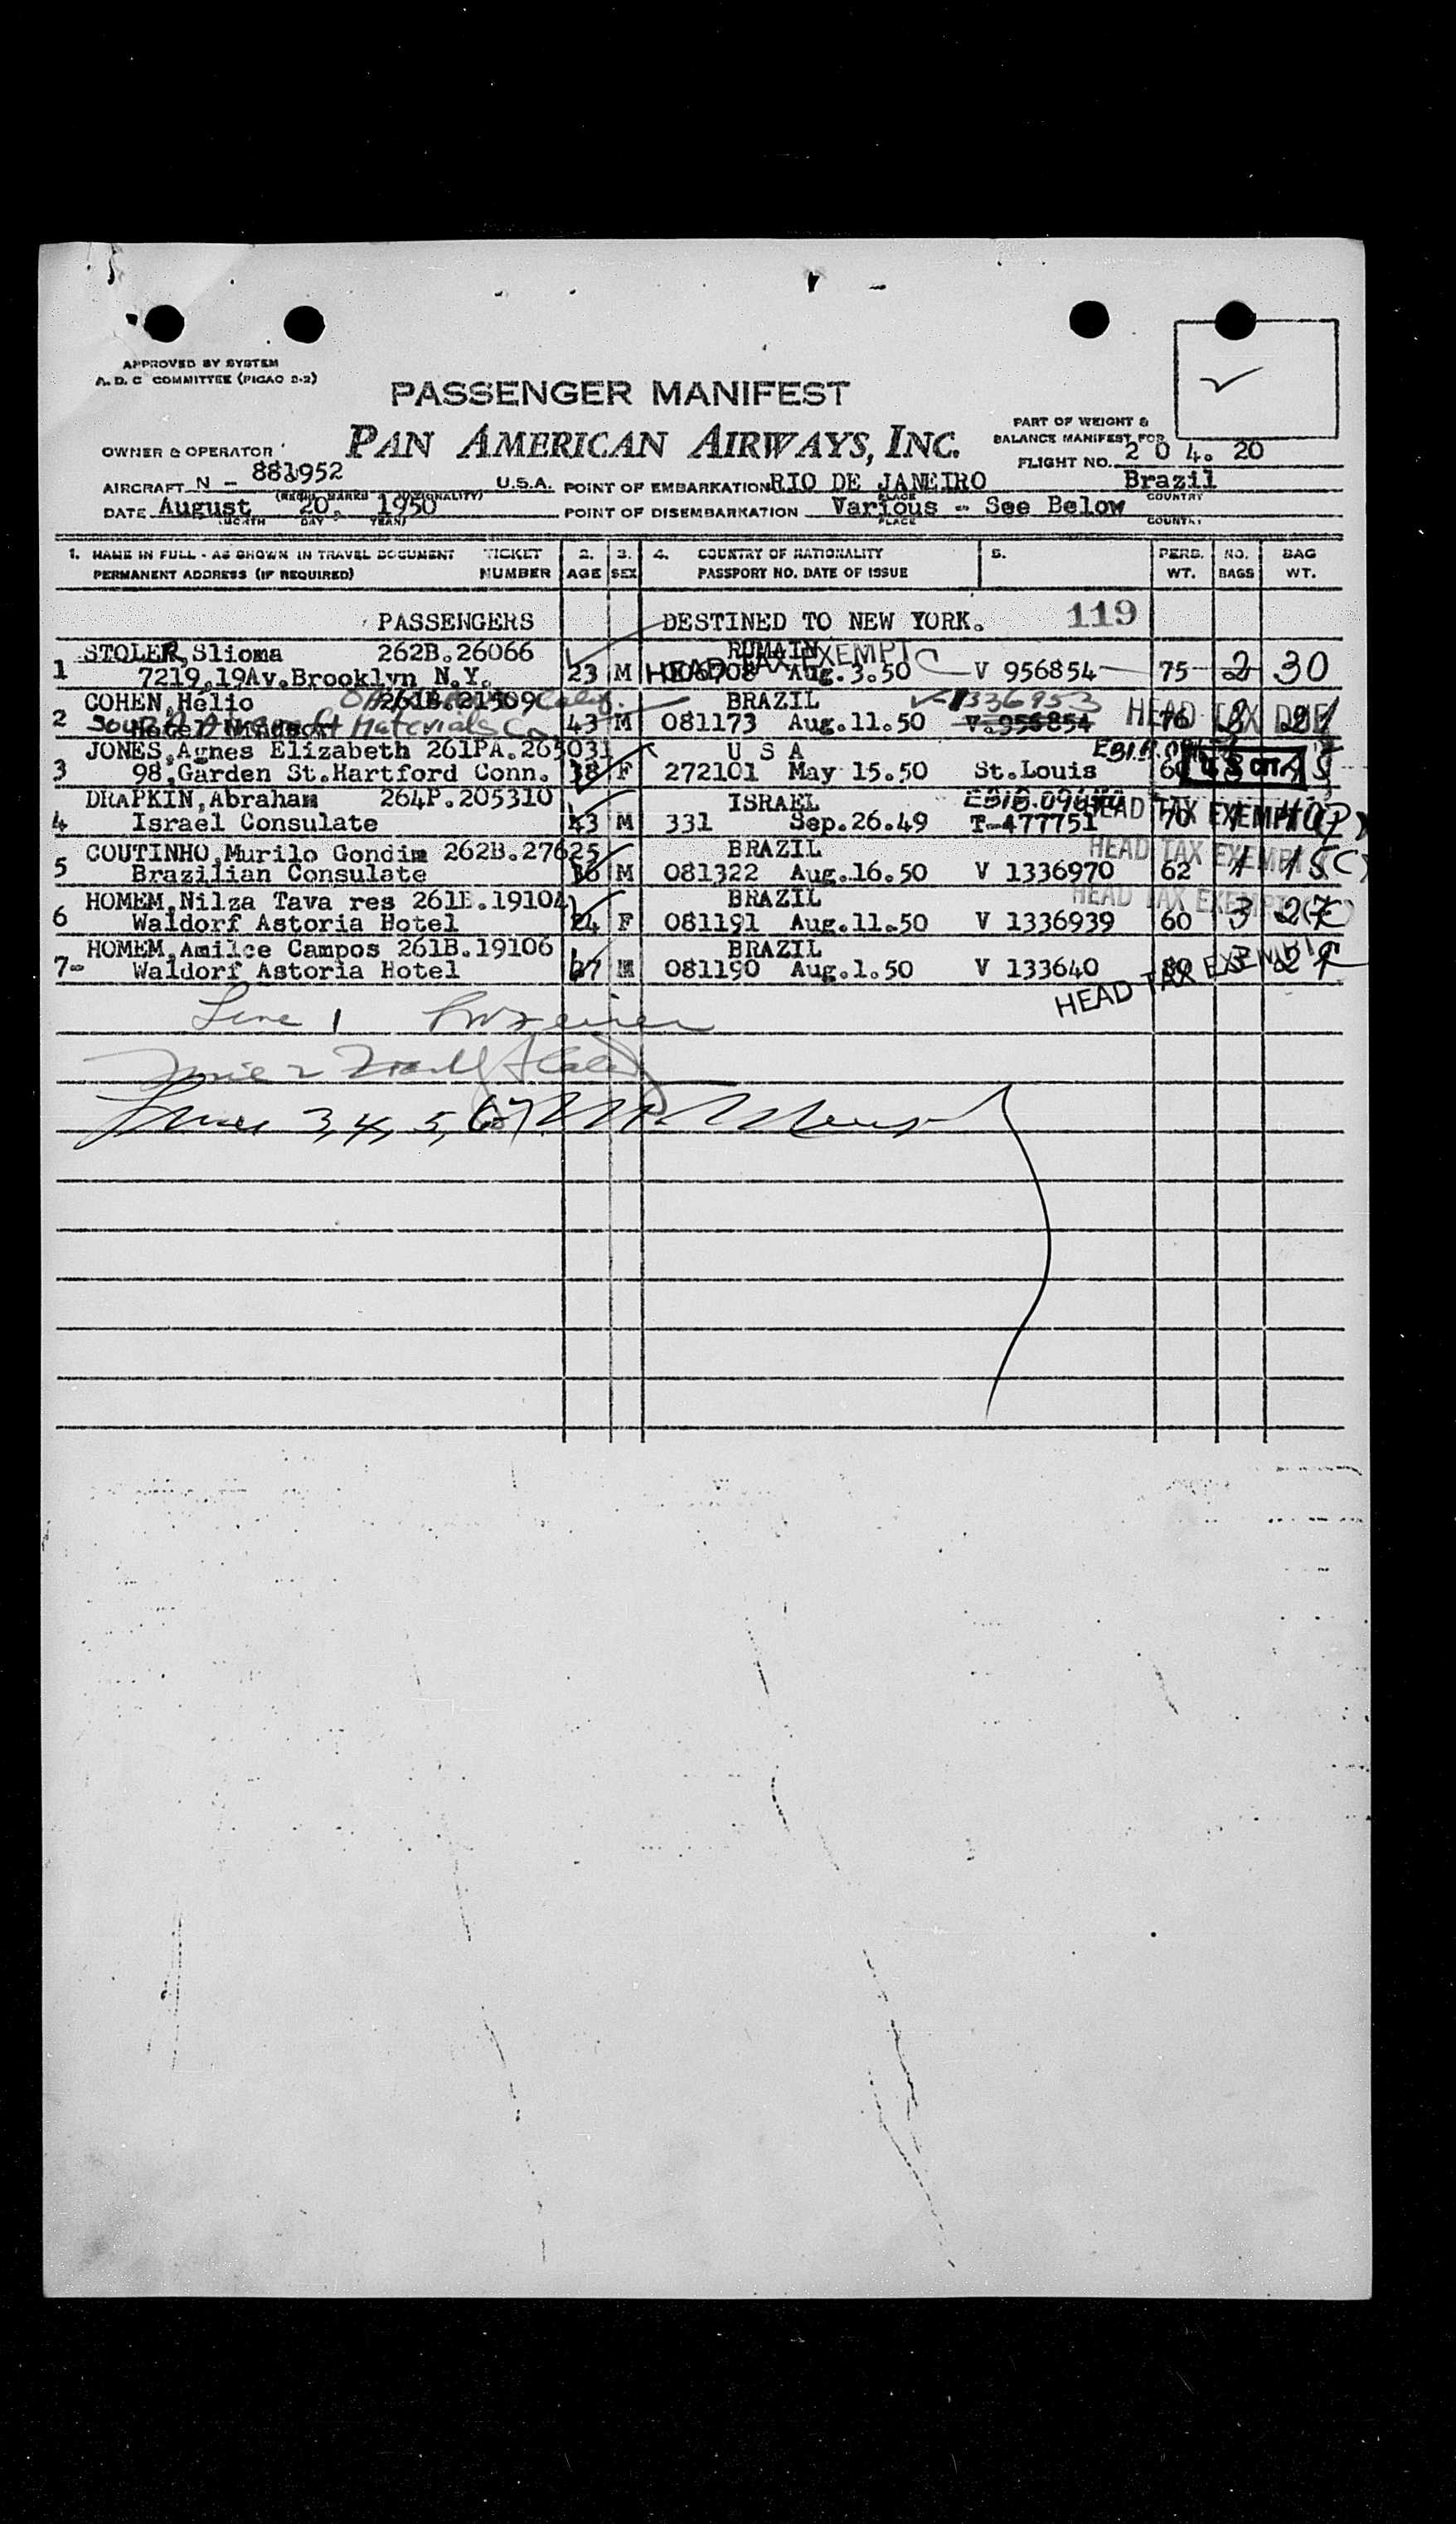 APPROVED BY SYSTEM
A. D. C COMMITTEE (PICAO 2-2)
PASSENGER MANIFEST
PAN AMERICAN AIRWAYS, INC.
OWNER & OPERATOR
PART OF WEIGHT &
BALANCE MANIFEST FOR
FLIGHT NO. 2 0 4. 20
AIRCRAFT N - 881952 U.S.A. POINT OF EMBARKATION RIO DE JANEIRO Brazil
PLACE COUNTRY
DATE August 20, 1950 POINT OF DISEMBARKATION Various - See Below
MONTH DAY YEAR PLACE COUNTRY
1. NAME IN FULL - AS SHOWN IN TRAVEL DOCUMENT TICKET 2. 3. 4. COUNTRY OF NATIONALITY 5. PERS. NO. BAG
PERMANENT ADDRESS (IF REQUIRED) NUMBER AGE SEX PASSPORT NO. DATE OF ISSUE WT. BAGS WT.
PASSENGERS DESTINED TO NEW YORK. 119
STOLER, Slioma 262B.26066 RUMAIN HEAD TAX EXEMPT
1 7219,19Av.Brooklyn N.Y. 23 M 006708 Aug.3.50 V 956854 75 2 30
COHEN, Helio 261B.21509 Calif. BRAZIL V-1336953 HEAD TAX DUE
2 Materials Co 43 M 081173 Aug.11.50 V.956854 76
JONES, Agnes Elizabeth 261PA.265031 U S A
3 98,Garden St.Hartford Conn. 38 F 272101 May 15.50 St.Louis
DRAPKIN, Abraham 264P.205310 ISRAEL HEAD TAX EXEMPT
4 Israel Consulate 43 M 331 Sep.26.49 T-477751 70
COUTINHO, Murilo Gondim 262B.27625 BRAZIL HEAD TAX EXEMPT
5 Brazilian Consulate 36 M 081322 Aug.16.50 V 1336970 62 1 15
HOMEM, Nilza Tava res 261B.19104 BRAZIL HEAD TAX EXEMPT
6 Waldorf Astoria Hotel 24 F 081191 Aug.11.50 V 1336939 60 3 27
HOMEM, Amilce Campos 261B.19106 BRAZIL
7- Waldorf Astoria Hotel M 081190 Aug.1.50 V 133640 80
HEAD TAX EXEMPT
Line 1
Line 2
Lines 3, 4, 5, 6, 7